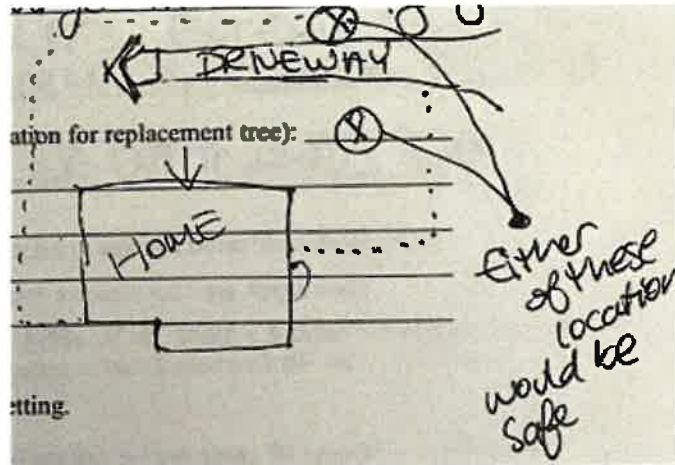 DRIVEWAY
ation for replacement tree):
HOME
Either
of these
location
would be
safe
etting.